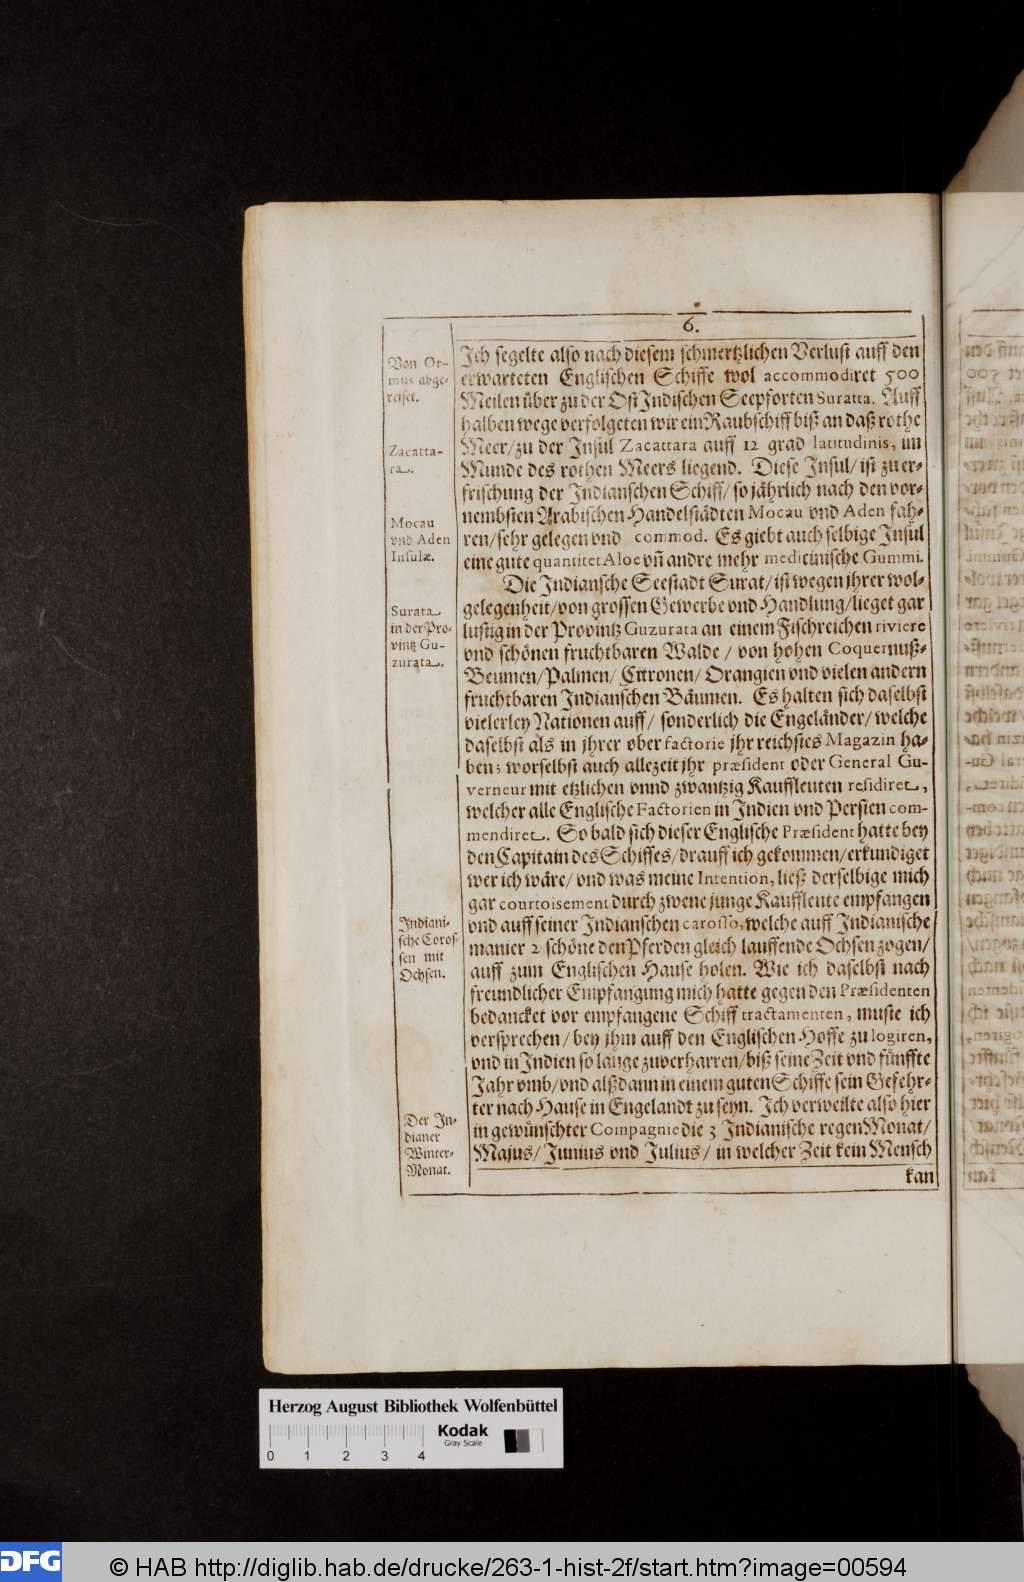 6.
Von Or-
mus abge-
reiset.
Zacatta-
ra.
Mocau
vnd Aden
Insulæ.
Surata
in der Pro-
vintz Gu-
zurata.
Indiani-
sche Coros-
sen mit
Ochsen.
Der In-
dianer
Winter-
Monat.
Ich segelte also nach diesem schmertzlichen Verlust auff den
erwarteten Englischen Schiffe wol accommodiret 500
Meilen über zu der Ost Indischen Seepforten Suratta. Auff
halben wege verfolgeten wir ein Raubschiff biß an daß rothe
Meer/ zu der Insul Zacattara auff 12 grad latitudinis, im
Munde des rothen Meers liegend. Diese Insul/ ist zu er-
frischung der Indianschen Schiff/ so jährlich nach den vor-
nembsten Arabischen Handelstädten Mocau vnd Aden fah-
ren/ sehr gelegen vnd commod. Es giebt auch selbige Insul
eine gute quantitet Aloe vñ andre mehr medicinische Gummi.
Die Indiansche Seestadt Surat/ ist wegen jhrer wol-
gelegenheit/ von grossen Gewerbe vnd Handlung/ lieget gar
lustig in der Provintz Guzurata an einem Fischreichen riviere
vnd schönen fruchtbaren Walde / von hohen Coquernuß-
Beumen/ Palmen/ Citronen/ Orangien vnd vielen andern
fruchtbaren Indianschen Bäumen. Es halten sich daselbst
vielerley Nationen auff/ sonderlich die Engeländer/ welche
daselbst als in jhrer ober factorie jhr reichstes Magazin ha-
ben; worselbst auch allezeit jhr præsident oder General Gu-
verneur mit etzlichen vnnd zwantzig Kauffleuten residiret,
welcher alle Englische Factorien in Indien vnd Persien com-
mendiret. So bald sich dieser Englische Præsident hatte bey
den Capitain des Schiffes/ drauff ich gekommen/ erkundiget
wer ich wäre/ vnd was meine Intention, ließ derselbige mich
gar courtoisement durch zwene junge Kauffleute empfangen
vnd auff seiner Indianschen carosso, welche auff Indianische
manier 2 schöne den Pferden gleich lauffende Ochsen zogen/
auff zum Englischen Hause holen. Wie ich daselbst nach
freundlicher Empfangung mich hatte gegen den Præsidenten
bedancket vor empfangene Schiff tractamenten, muste ich
versprechen/ bey jhm auff den Englischen Hoffe zu logiren,
vnd in Indien so lange zuverharren/ biß seine Zeit vnd fünffte
Jahr vmb/ vnd alßdann in einem guten Schiffe sein Gefehr-
ter nach Hause in Engelandt zu seyn. Ich verweilte also hier
in gewünschter Compagnie die 3 Indianische regen Monat/
Majus/ Junius vnd Julius/ in welcher Zeit kein Mensch
kan
Herzog August Bibliothek Wolfenbüttel
Kodak
Gray Scale
0 1 2 3 4
DFG © HAB http://diglib.hab.de/drucke/263-1-hist-2f/start.htm?image=00594